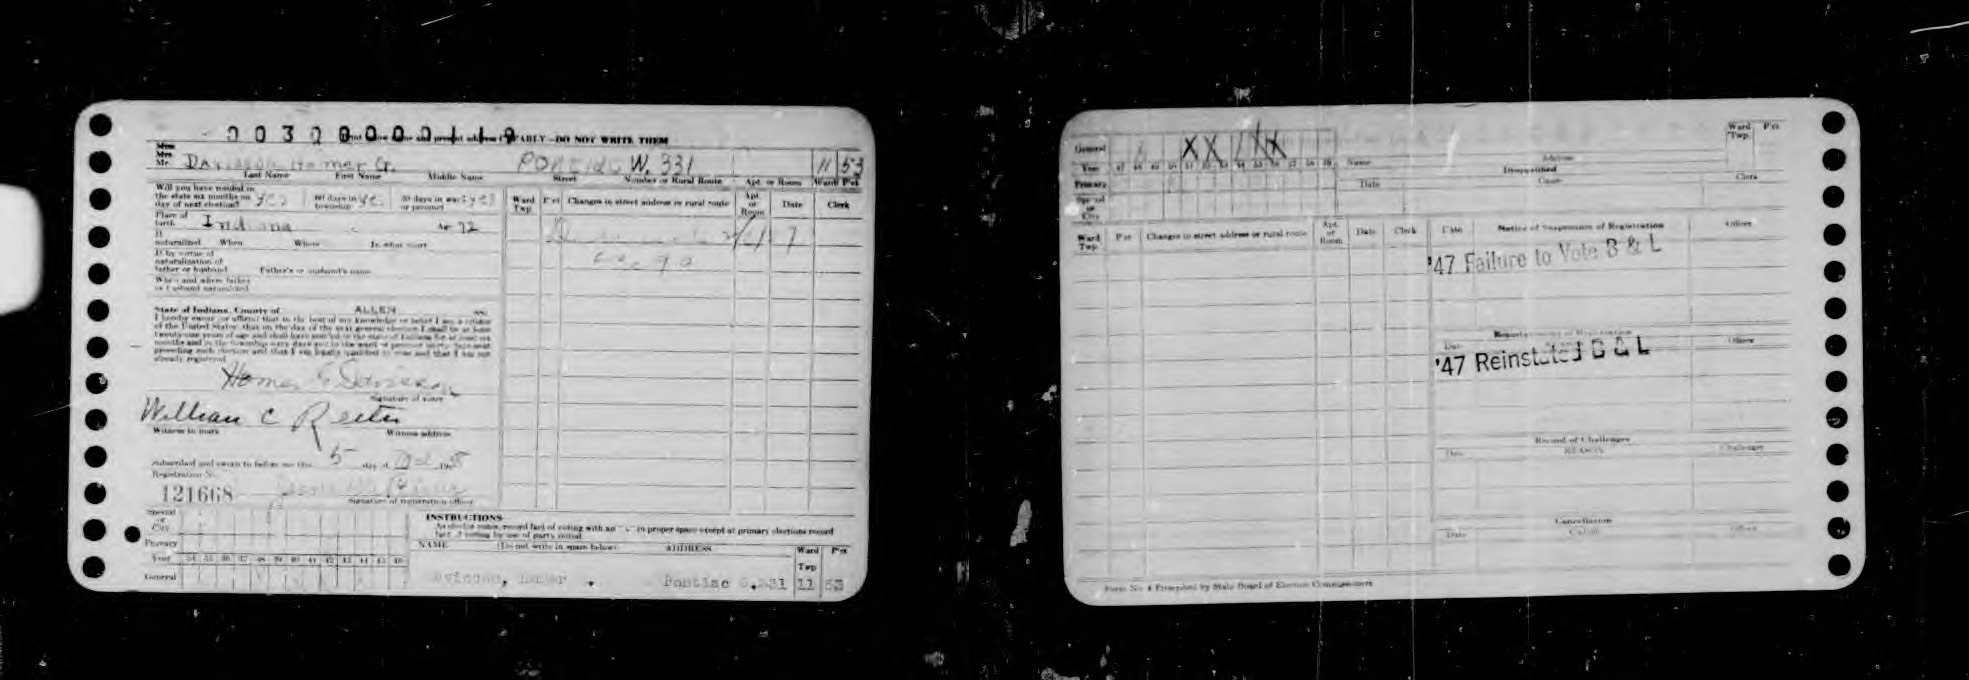 00300000119
PLY—DO NOT WRITE THEM
Mrs.
Mr. Homer G. Pontiac W. 331 11 53
Last Name First Name Middle Name Street Number or Rural Route Apt. or Room Ward P'ct
Will you have resided in
the state six months on yes 60 days in yes 30 days in ward yes
day of next election? township or precinct
Place of
birth Indiana Age 72
If
naturalized When Where In what court
If by virtue of
naturalization of
father or husband Father's or husband's name
When and where father
or husband naturalized
Ward Twp. P'ct Changes in street address or rural route Apt. or Room Date Clerk
State of Indiana, County of ALLEN SS:
I hereby swear or affirm that to the best of my knowledge or belief I am a citizen
of the United States; that on the day of the next general election I shall be at least
twenty-one years of age and shall have resided in the state of Indiana for at least six
months and in the township sixty days and in the ward or precinct thirty days next
preceding such election and that I am legally qualified to vote and that I am not
already registered
Homer
Signature of voter
William C
Witness to mark Witness address
Subscribed and sworn to before me this 5 day of
Registration No.
121668
Signature of registration officer
INSTRUCTIONS
As elector votes, record fact of voting with an in proper space except at primary elections record
fact of voting by use of party initial
NAME (Do not write in space below) ADDRESS Ward Twp P'ct
Pontiac W.331 11 53
Special
or
City
Primary
Year 34 35 36 37 38 39 40 41 42 43 44 45 46
General
General XX XX
Year 47 48 49 50 51 52 53 54 55 56 57 58 59
Primary
Special
or
City
Name Address Ward Twp. P'ct
Disqualified
Date Cause Clerk
Ward Twp. P'ct Changes in street address or rural route Apt. or Room Date Clerk
Date Notice of Suspension of Registration Officer
'47 Failure to Vote B & L
Reinstatement of Registration
Date Officer
'47 Reinstated B & L
Record of Challenges
Date REASON Challenger
Cancellation
Date Cause Officer
Form No. 4 Prescribed by State Board of Election Commissioners